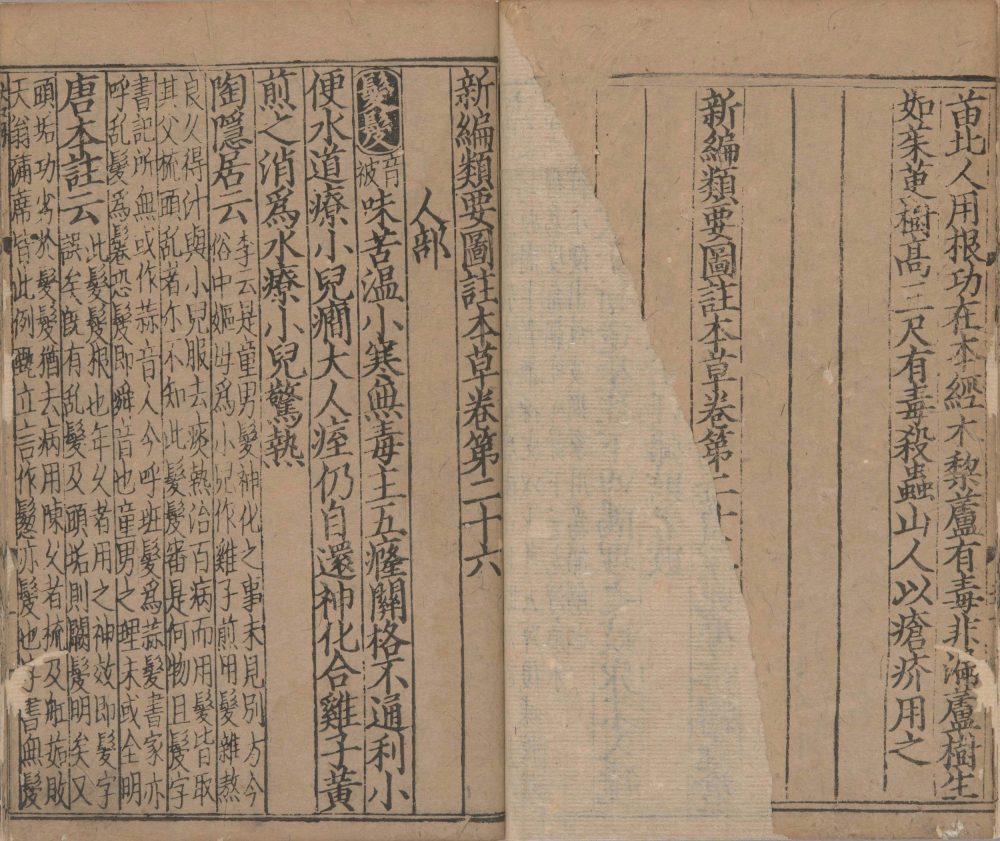 苗北人用根功在本經木黎蘆有毒非漏蘆樹生
如茱萸樹高三尺有毒殺蟲山人以瘡疥用之
新編類要圖註本草卷第二十
新編類要圖註本草卷第二十六
人部
髮髲音被味苦溫小寒無毒主五癃關格不通利小
便水道療小兒癎大人痓仍自還神化合雞子黃
煎之消為水療小兒驚熱
陶隱居云李云是童男髮神化之事未見別方今
俗中嫗母為小兒作雞子煎用髮雜熬
良久得汁與小兒服去痰熱治百病而用髮皆取
其父梳頭亂者亦不知此髮髲審是何物且髲字
書記所無或作蒜音人今呼班髮為蒜髮書家亦
呼乱髮為鬈恐髲即鬈音也童男之理未或全明
唐本註云此髮髲根也年久者用之神效即髮字
誤矣既有乱髮及頭垢則闕髮明矣又
頭垢功劣於髮髮猶去病用陳久者梳及舡茹敗
天翁蒲席皆此例甄立言作鬉亦髮也字書無髲